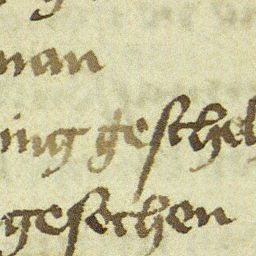 man
ing gescheh
gesechen